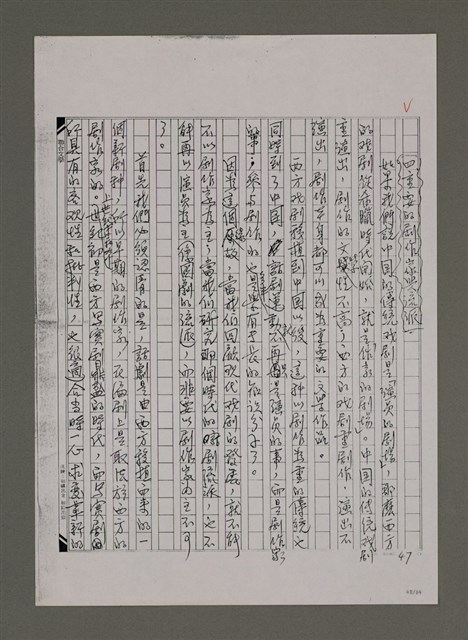 四、重要的劇作家與流派
如果我們說中國的傳統戲劇是「演員的劇場」，那麼西方
的戲劇從希臘時代開始，就是「作家的劇場」。中國的傳統戲劇
重演出，劇作的文學性不高；西方的戲劇重劇作，演出不
演出，劇作本身都可以成為重要的文學作品。
西方戲劇移植到中國以後，這種以劇作為重的傳統也
同時到了中國，話劇不再只是演員的事，而是劇作家
的事，參與劇作的也是具有專長的知識分子了。
因為這個緣故，當我們回顧現代戲劇的發展，就不能
不以劇作家為主；當我們研究那個時代的戲劇流派，也不
能再以演員為主，而非要以劇作家為主不可
了。
首先我們必須認清的是，話劇是由西方移植而來的一
個新劇種，所以早期的劇作家，在編劇上是取法於西方的
劇作家的。上世紀末本世紀初是西方寫實劇鼎盛的時代，而寫實劇的
所具有的客觀性和批判性，也很適合當時一心求變革新的
47